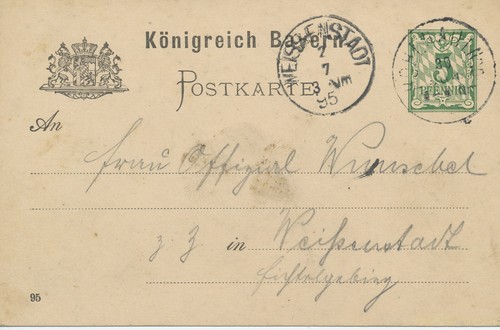 Königreich Bayern
POSTKARTE
WEISSENSTADT
2
7
3 Vm
95
5
PFENNIG
An
Frau Offizial Wunschel
z. Z. in Weißenstadt
Fichtelgebirg
95